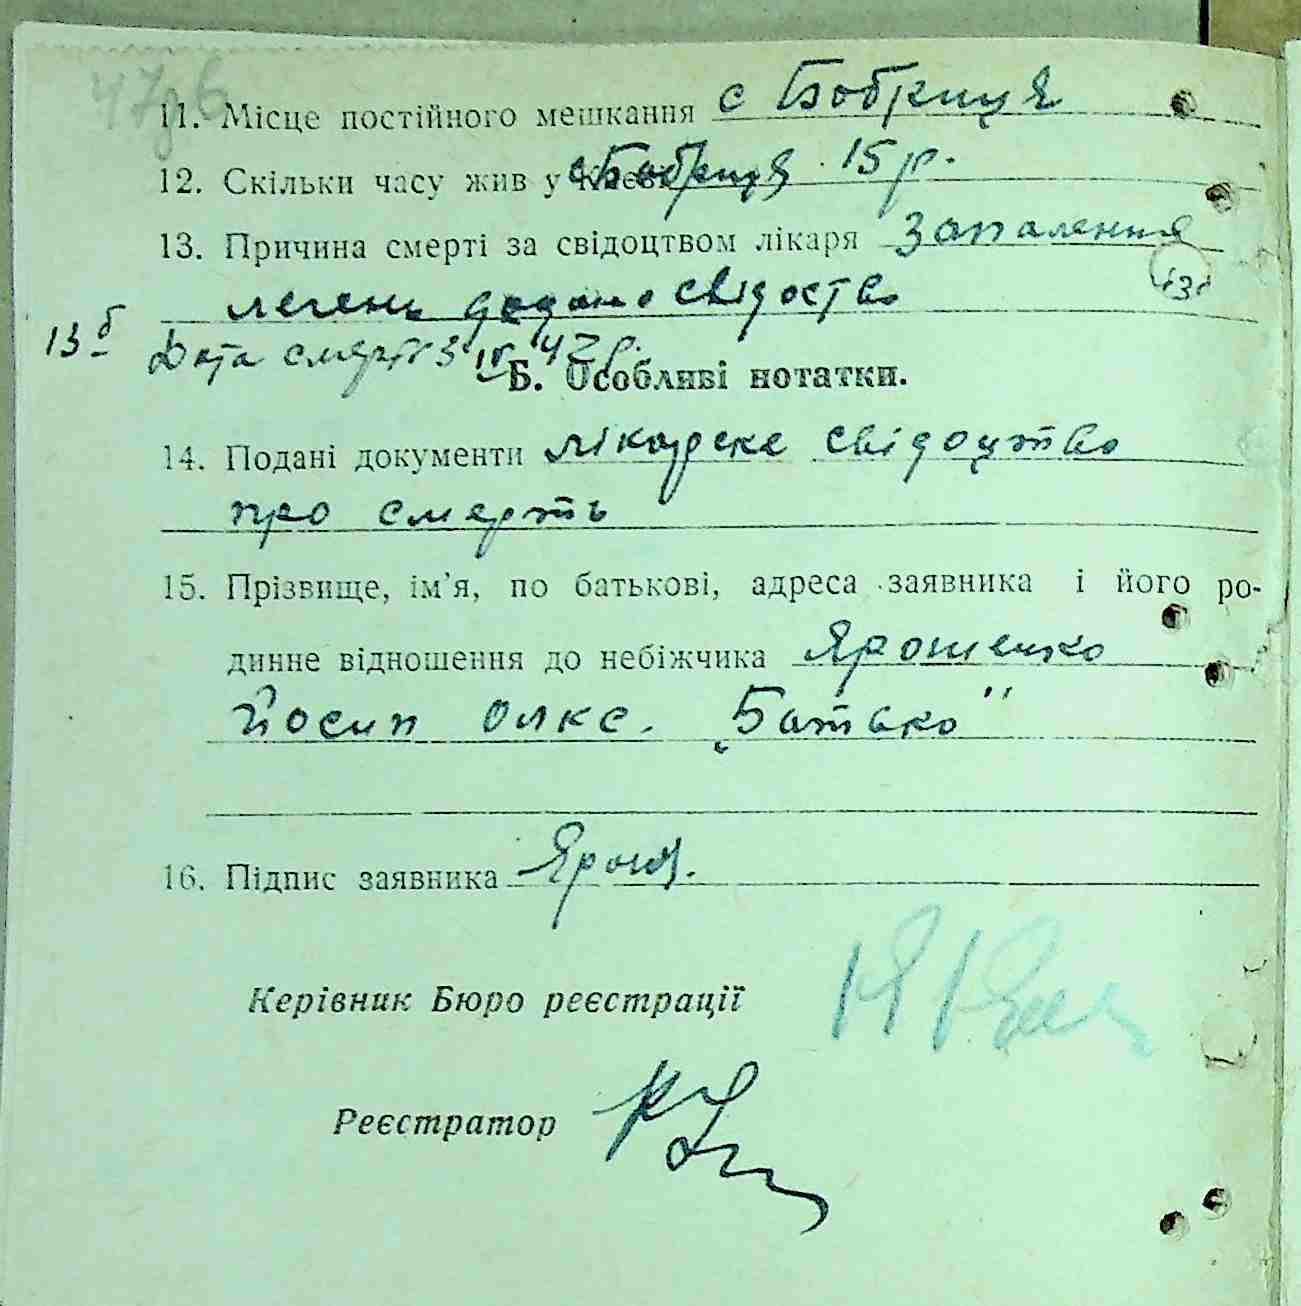 11. Місце постійного мешкання с Бобриця
12. Скільки часу жив у Києві с Бобриця 15 р.
13. Причина смерті за свідоцтвом лікаря Запалення
легень додано свідоство
13б Дата смерті 3 IV 47 р.
Б. Особливі нотатки.
14. Подані документи лікарске свідоцтво
про смерть
15. Прізвище, ім'я, по батькові, адреса заявника і його ро-
динне відношення до небіжчика Ярошенко
Йосип Олкс. „Батько"
16. Підпис заявника Ярош.
Керівник Бюро реєстрації
Реєстратор